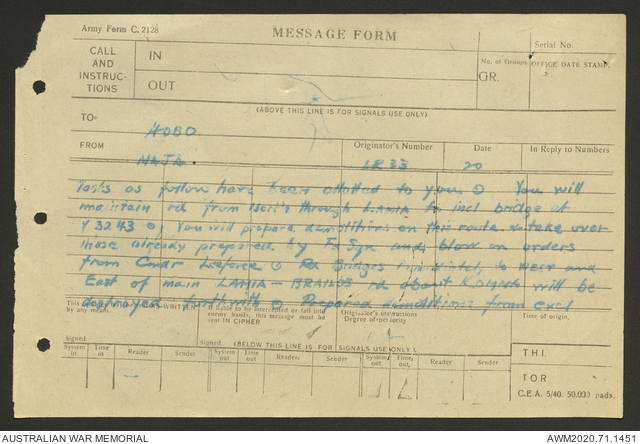 Army Form C. 2128
MESSAGE FORM
Serial No.
CALL AND INSTRUC- TIONS
IN
OUT
No. of Groups
GR.
OFFICE DATE STAMP.
(ABOVE THIS LINE IS FOR SIGNALS USE ONLY)
TO
HOBO
FROM
Originator's Number
Date
In Reply to Numbers
LR 33
20
Tasks as follow have been allotted to you. You will
maintain rd from through LAMIA to incl bridge at
Y 3243 You will prepare demolitions on this route take over
those already prepared by Fd Sqn and blow on orders
from Comdr Rd Bridges immediately to West and
East of main LAMIA – BRALOS rd about will be
destroyed forthwith Prepared demolitions from excl
This WRITTEN
by any means.
If liable to be intercepted or fall into
enemy hands, this message must be
sent IN CIPHER
Originator's instructions
Degree of priority
Time of origin.
Signed
Signed
(BELOW THIS LINE IS FOR SIGNALS USE ONLY
T.H.I.
System in
Time in
Reader
Sender
System out
Time out
Reader
Sender
System out
Time out
Reader
Sender
T O R
C.E.A. 5/40. 50,000 pads.
AUSTRALIAN WAR MEMORIAL
AWM2020.71.1451